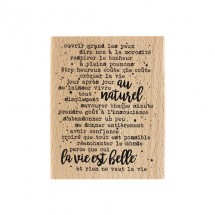 ouvrir grand les yeux
dire non à la morosité
respirer le bonheur
à pleins poumons
être heureux coûte que coûte
croquer la vie
jour après jour au
se laisser vivre
tout naturel
simplement
savourer chaque minute
prendre goût à l'insouciance
s'abandonner un peu
se donner entièrement
avoir confiance
croire que tout est possible
réenchanter le monde
parce que oui
la vie est belle
et rien ne vaut la vie